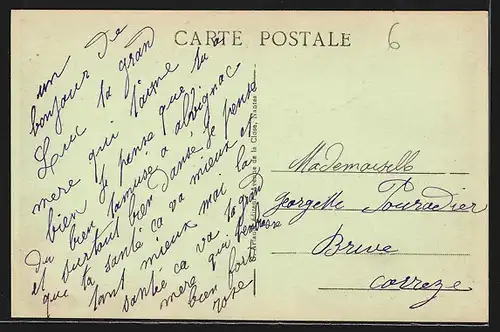 CARTE POSTALE
6
un
bonjour de
Luc ta grand
mere qui t'aime
bien Je pense que tu a
du bien tamusé a albignac
et surtout bien dansé Je pense
que ta santé ca va mieux et
tant mieux mai la
santé ca va ta grand
mere qui t'embrasse
bien fort
rose
de la Close, Nantes
Mademoiselle
Georgette Pouradier
Brive
Correze